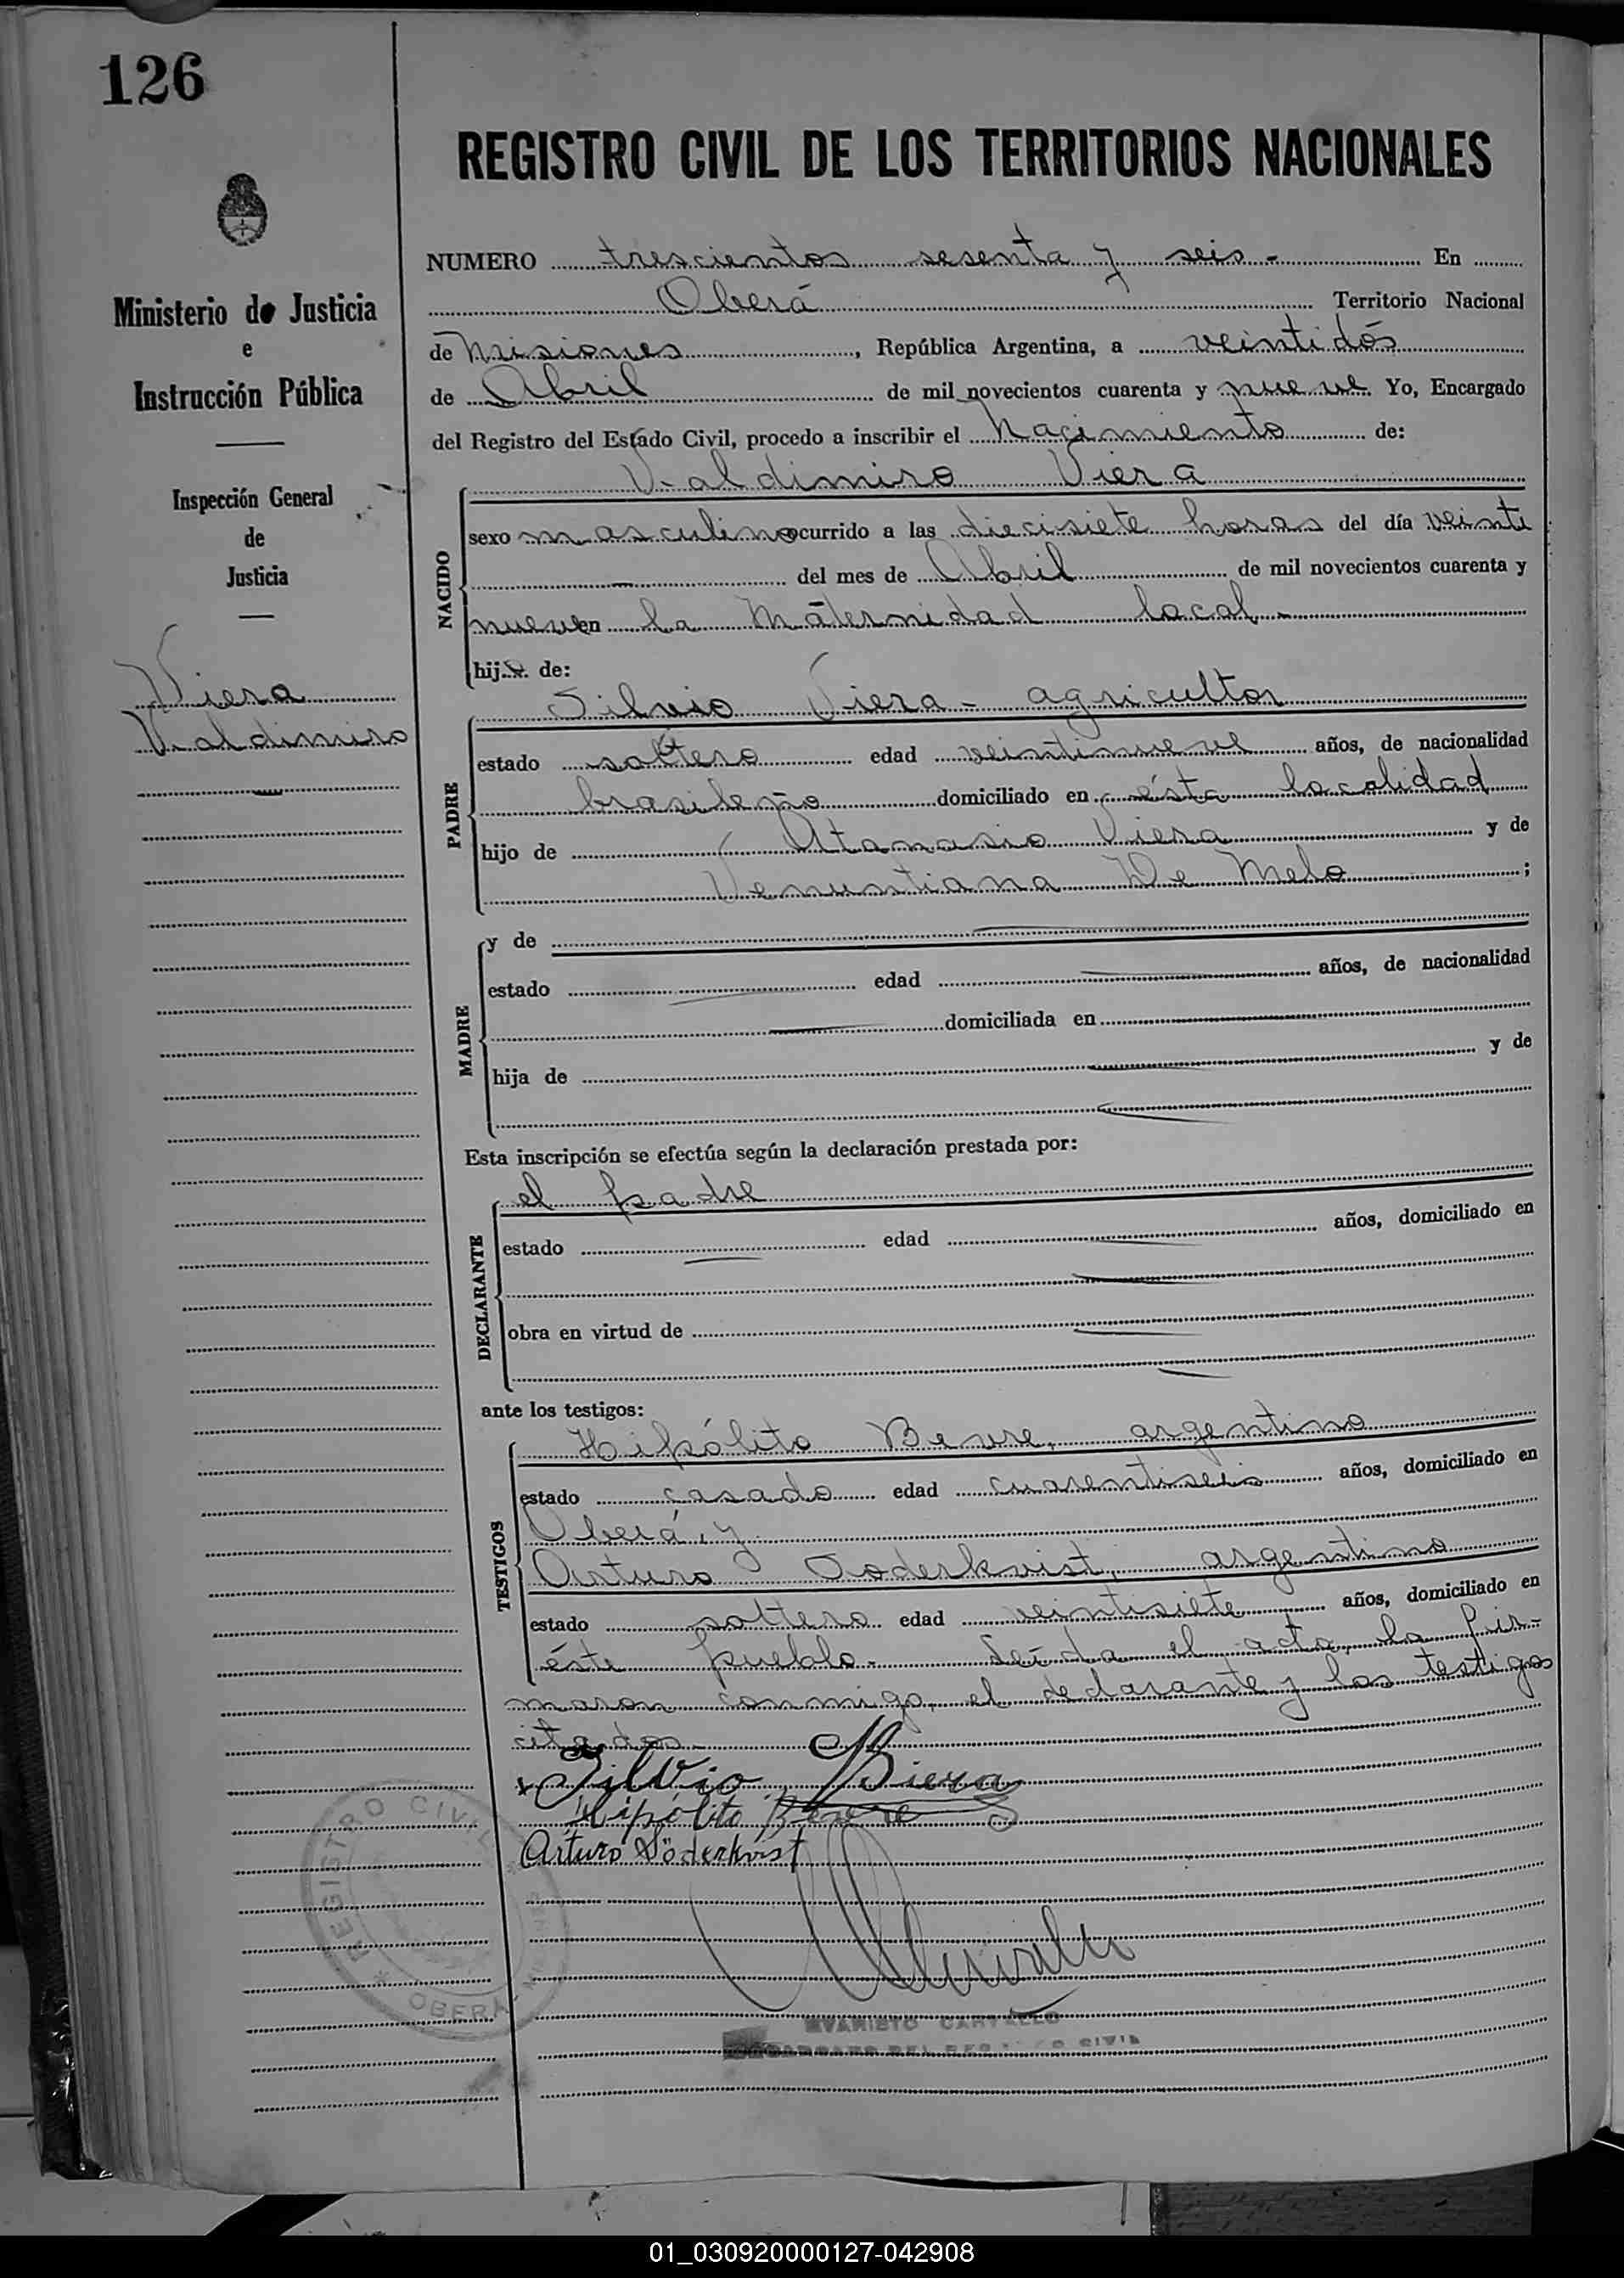 126
REGISTRO CIVIL DE LOS TERRITORIOS NACIONALES
Ministerio de Justicia
e
Instrucción Pública
Inspección General
de
Justicia
Viera
Valdimiro
NUMERO trescientos sesenta y seis - En
Oberá Territorio Nacional
de Misiones, República Argentina, a veintidós
de Abril de mil novecientos cuarenta y nueve Yo, Encargado
del Registro del Estado Civil, procedo a inscribir el Nacimiento de:
NACIDO
Valdimiro Viera
sexo masculino ocurrido a las diecisiete horas del día veinte
del mes de Abril de mil novecientos cuarenta y
nueve en la Maternidad local -
hijo de:
PADRE
Silvio Viera - agricultor
estado soltero edad veintinueve años, de nacionalidad
brasileño domiciliado en ésta localidad
hijo de Atanasio Viera y de
Venunstiana De Melo ;
MADRE
y de
estado edad años, de nacionalidad
domiciliada en
hija de y de
Esta inscripción se efectúa según la declaración prestada por:
DECLARANTE
el padre
estado edad años, domiciliado en
obra en virtud de
ante los testigos:
TESTIGOS
Hipólito Bevre, argentino
estado casado edad cuarentiseis años, domiciliado en
Oberá, y
Arturo Soderkvist, argentino
estado soltero edad veintisiete años, domiciliado en
éste pueblo. Leída el acta, la fir-
maron conmigo, el declarante y los testigos
citados -
Silvio Biera
Hipólito Bevre
Arturo Söderkvist
REGISTRO CIVIL
OBERA
EVARISTO
ENCARGADO DEL REGISTRO CIVIL
01_030920000127-042908